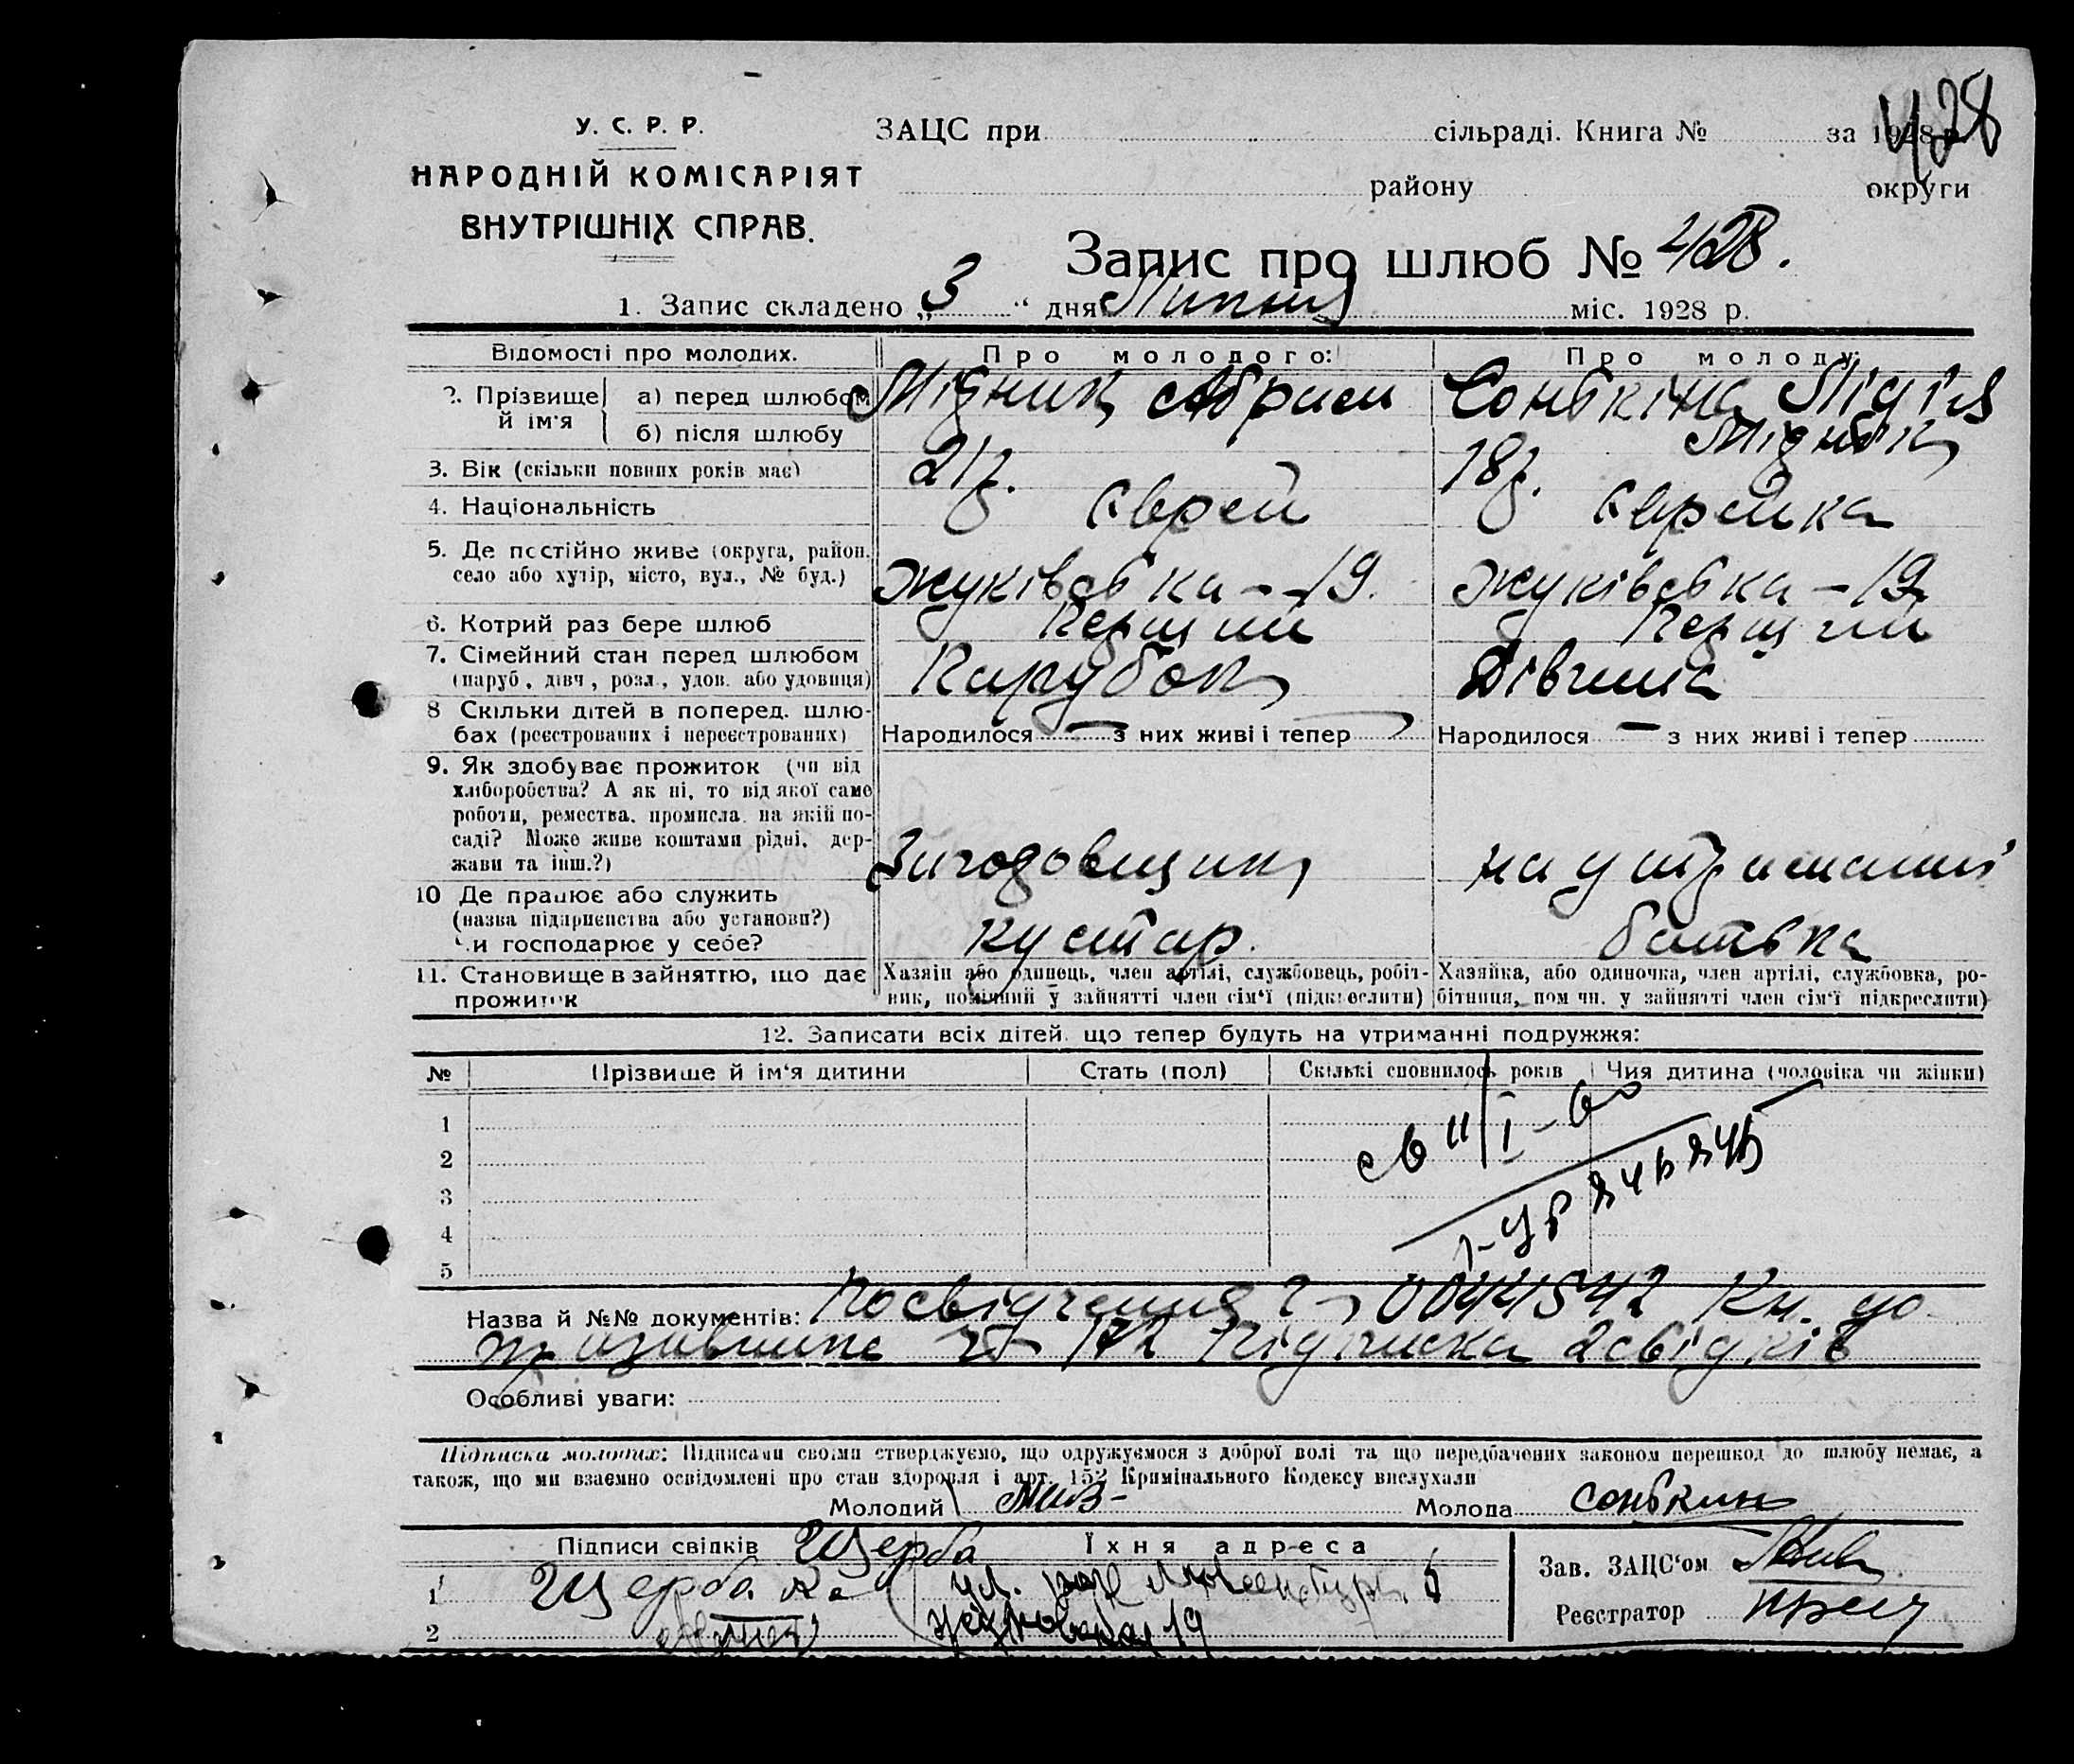 428
У. С. Р. Р.
НАРОДНІЙ КОМІСАРІЯТ
ВНУТРІШНІХ СПРАВ.
ЗАЦС при сільраді. Книга № за 1928 р.
району округи
Запис про шлюб № 428.
1. Запис складено „3“ дня Липня міс. 1928 р.
Відомості про молодих. Про молодого: Про молоду:
2. Прізвище й ім'я а) перед шлюбом Мідник Абрам Сонькіна Лідія
б) після шлюбу Мідник
3. Вік (скільки повних років має) 21 р. 18 р.
4. Національність Єврей Єврейка
5. Де постійно живе (округа, район,
село або хутір, місто, вул., № буд.) Жуківська - 19. Жуківська - 19
6. Котрий раз бере шлюб Перший Перший
7. Сімейний стан перед шлюбом
(паруб., дівч., розл., удов. або удовиця) Парубок Дівчина
8 Скільки дітей в поперед. шлю-
бах (реєстрованих і нереєстрованих) Народилося — з них живі і тепер Народилося — з них живі і тепер
9. Як здобуває прожиток (чи від
хліборобства? А як ні, то від якої саме
роботи, ремества, промисла, на якій по-
саді? Може живе коштами рідні, дер-
жави та інш.?) на утриманні
10 Де працює або служить
(назва підприємства або установи?)
Чи господарює у себе? кустар. батька
11. Становище в зайняттю, що дає
прожиток
Хазяїн або одинець, член артілі, службовець, робіт-
ник, помічний у зайнятті член сім'ї (підкреслити)
Хазяйка, або одиночка, член артілі, службовка, ро-
бітниця, пом чн. у зайнятті член сім'ї підкреслити)
12. Записати всіх дітей, що тепер будуть на утриманні подружжя:
№ Прізвище й ім'я дитини Стать (пол) Скількі сповнилось років Чия дитина (чоловіка чи жінки)
1
2
3
4
5
Назва й №№ документів: Посвідчення 00441542 Кн. до
172 Підписка 2 свідків
Особливі уваги:
Підписка молодих: Підписами своїми стверджуємо, що одружуємося з доброї волі та що передбачених законом перешкод до шлюбу немає, а
також, що ми взаємно освідомлені про стан здоровля і арт. 152 Кримінального Кодексу вислухали
Молодий Молода Сонькин
Підписи свідків Щерба Їхня адреса
1 Щербак
2 19
Зав. ЗАЦС'ом
Реєстратор